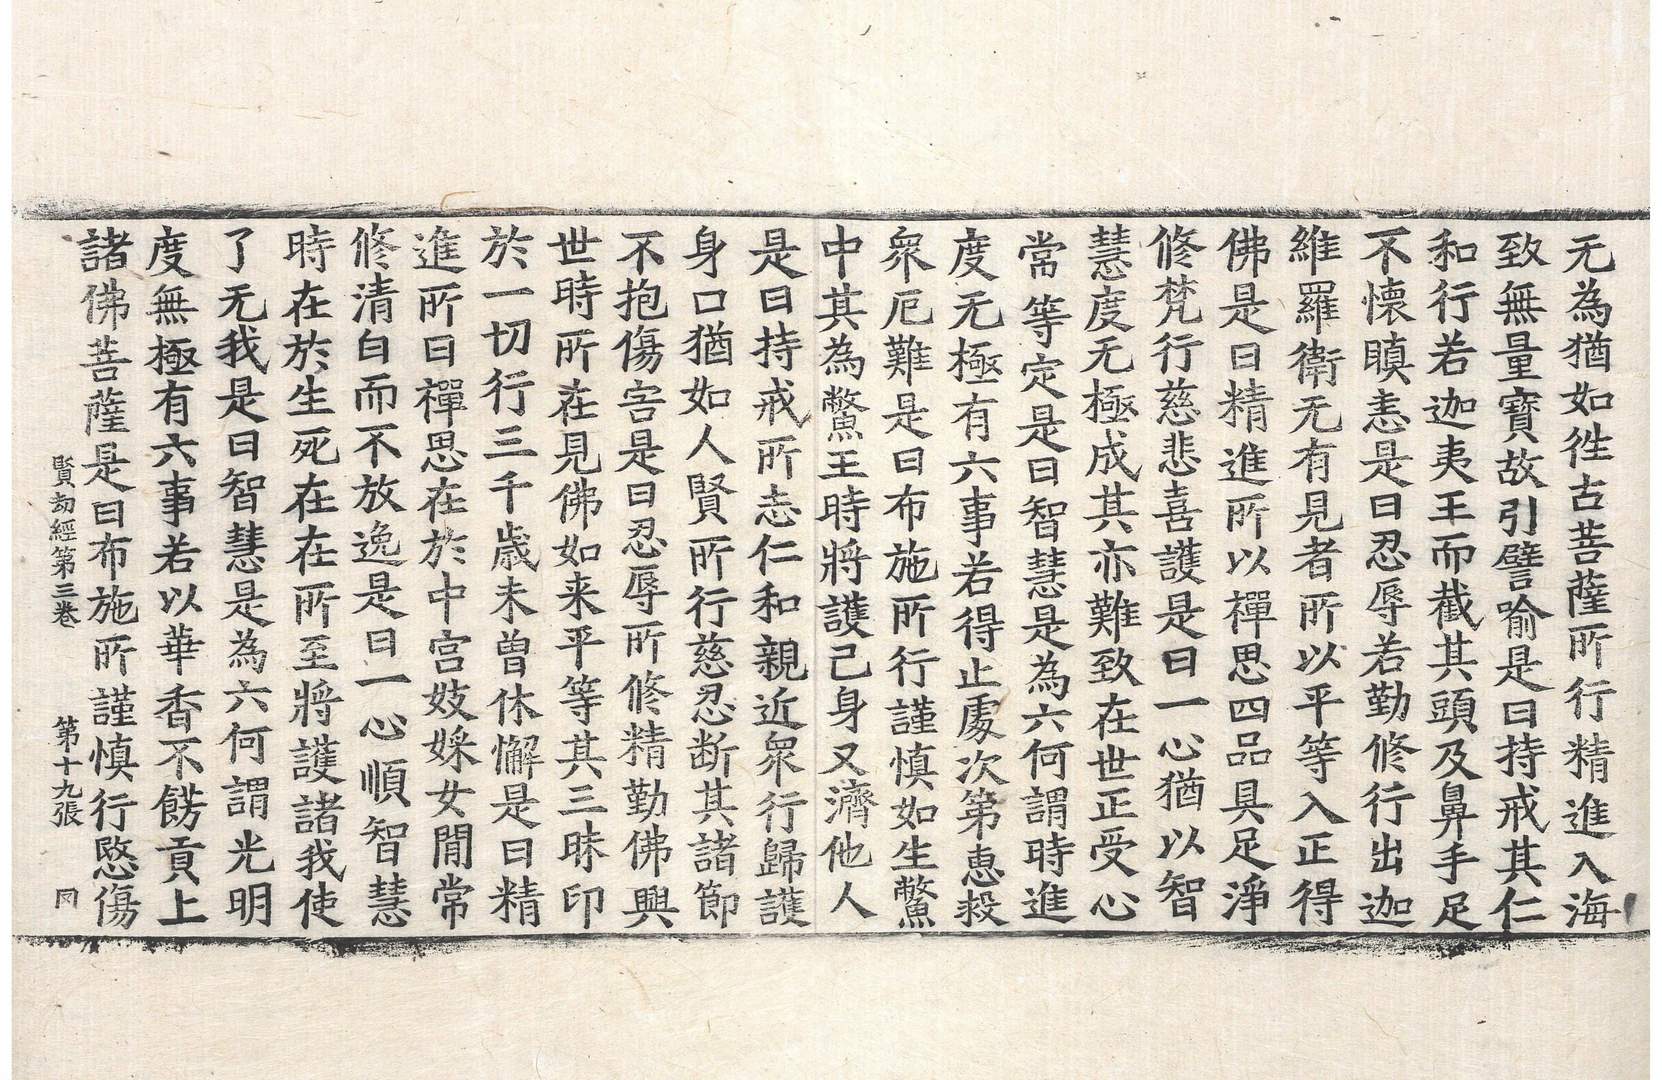 无為猶如徃古菩薩所行精進入海
致無量寶故引譬喻是曰持戒其仁
和行若迦夷王而截其頭及鼻手足
不懐瞋恚是曰忍辱若勤修行出迦
維羅衛无有見者所以平等入正得
佛是曰精進所以禪思四品具足淨
修梵行慈悲喜護是曰一心猶以智
慧度无極成其亦難致在世正受心
當等定是曰智慧是為六何謂時進
度无極有六事若得止處次第恵投
衆厄難是曰布施所行謹慎如生鱉
中其為鱉王時將護己身又濟他人
是曰持戒所志仁和親近衆行歸護
身口猶如人賢所行慈忍断其諸節
不抱傷害是曰忍辱所修精勤佛興
世時所在見佛如来平等其三昧印
於一切行三千歲未曾休懈是曰精
進所曰禪思在於中宮妓婇女閒常
修清白而不放逸是曰一心順智慧
時在於生死在在所至將護諸我使
了无我是曰智慧是為六何謂光明
度無極有六事若以華香不餝貢上
諸佛菩薩是曰布施所謹慎行愍傷
賢劫經第三卷 第十九張 冈